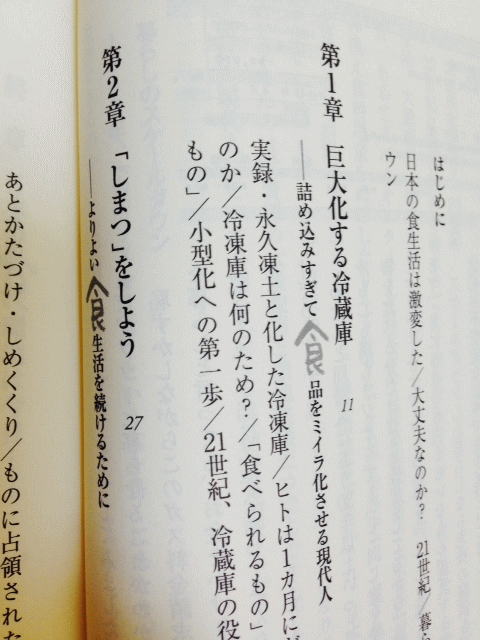 はじめに
日本の食生活は激変した/大丈夫なのか? 21世紀/暮
ウン
第1章 巨大化する冷蔵庫 11
――詰め込みすぎて食品をミイラ化させる現代人
実録・永久凍土と化した冷凍庫/ヒトは1カ月に
のか/冷凍庫は何のため?/「食べられるもの」
もの」/小型化への第一歩/21世紀、冷蔵庫の役
第2章 「しまつ」をしよう 27
――よりよい食生活を続けるために
あとかたづけ・しめくくり/ものに占領された